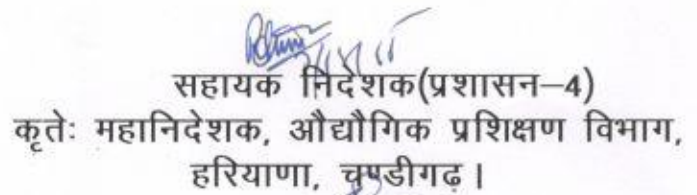 सहायक निदेशक(प्रशासन–4)
कृतेः महानिदेशक, औद्यौगिक प्रशिक्षण विभाग,
हरियाणा, चण्डीगढ़।